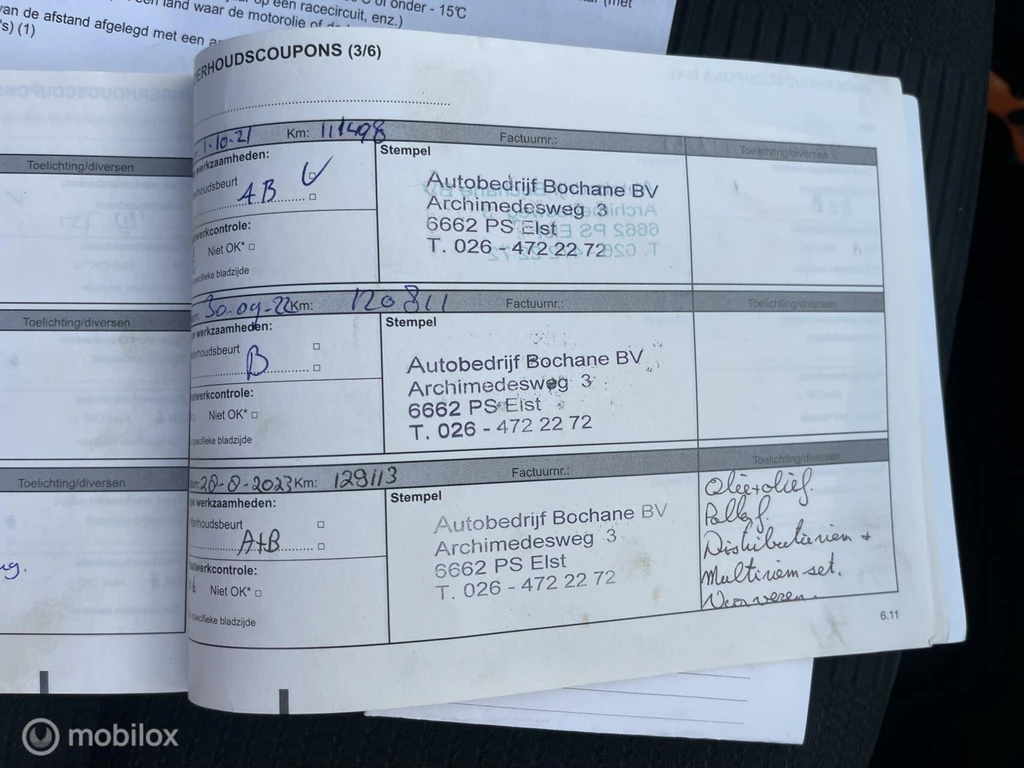 of onder - 15℃
een land waar de motorolie of de
op een racecircuit, enz.)
van de afstand afgelegd met een
's) (1)
ERHOUDSCOUPONS (3/6)
Toelichting/diversen
1-10-21 Km: 111498 Factuurnr.: Toelichting/diversen
werkzaamheden:
houdsbeurt
AB
werkcontrole:
Niet OK*
specifieke bladzijde
Stempel
Autobedrijf Bochane BV
Archimedesweg 3
6662 PS Elst
T. 026 - 472 22 72
Toelichting/diversen
30-09-22 Km: 120811 Factuurnr.: Toelichting/diversen
werkzaamheden:
houdsbeurt
B
werkcontrole:
Niet OK*
specifieke bladzijde
Stempel
Autobedrijf Bochane BV
Archimedesweg 3
6662 PS Elst
T. 026 - 472 22 72
Toelichting/diversen
28-8-2023 Km: 129113 Factuurnr.: Toelichting/diversen
werkzaamheden:
houdsbeurt
A+B
werkcontrole:
Niet OK*
specifieke bladzijde
Stempel
Autobedrijf Bochane BV
Archimedesweg 3
6662 PS Elst
T. 026 - 472 22 72
Olie+olief.
Pollf.
Distributieriem +
Multiriem set.
6.11
mobilox